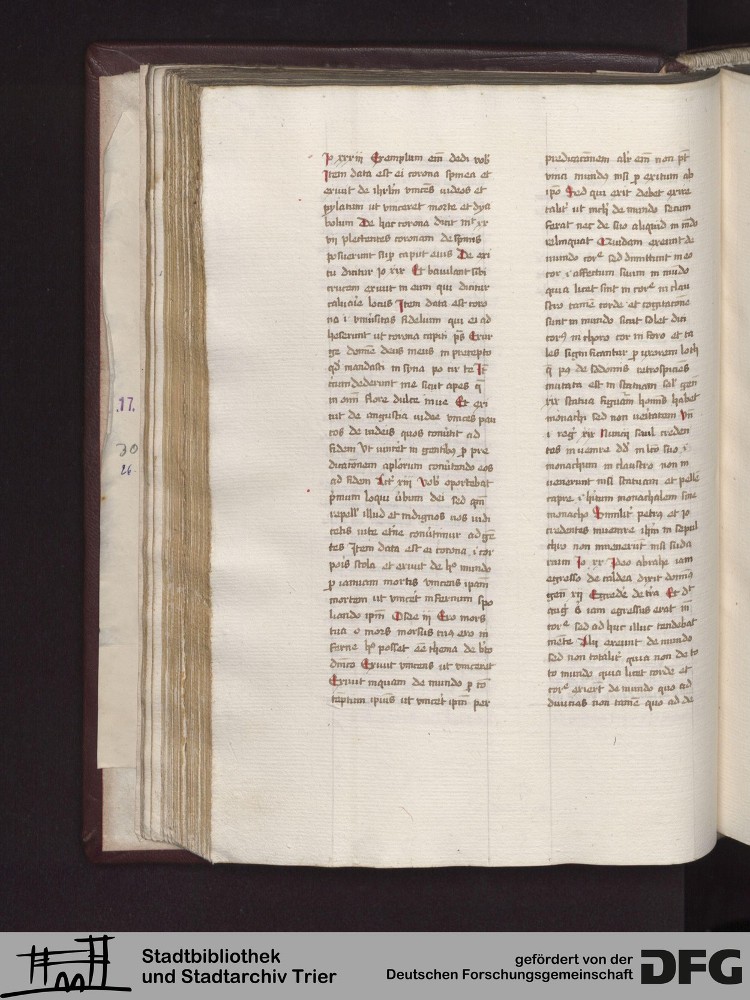 .17.
30
26.
Exemplum em dedi vob
Item data est ei corona spinea et
exiuit de ihrlm vinces iudeos et
pylatum ut vinceret morte et dya
bolum De hac corona dicit mt xx
vii plectentes coronam de spinis
posuerunt sup caput eius De exi
tu dicitur Jo xix Et baiulans sibi
crucem exiuit in eum qui dicitur
caluarie locus Item data est coro
na i vniuersitas fidelium qui ei ad
heserunt ut corona capiti ps Exur
ge domine deus meus in precepto
qd mandasti et syna po tur te It
circumdederunt me sicut apes
in omni flore dulce Et exi
uit de angustia iudee vinces pau
cos de iudeis quos conuertit ad
fidem Ut vincet in gentibus p pre
dicationem aplorum conuertendo eos
ad fidem Act xiii Vob oportebat
primum loqui uerbum dei sed qm
repell illud et indignos uos iudi
catis uite eterne conuertimur ad gen
tes Item data est ei corona i cor
pois stola et exiuit de hoc mundo
p ianuam mortis vincens ipam
mortem ut vincet infernum spo
liando ipm Osee iii Ero mors
tua o mors morsus tuus ero in
ferne hoc posset esse thema de bto
dnico Exiuit vincens ut vinceret
Exiuit inquam de mundo p con
temptum ipius ut vincet ipm per
predicationem alr em non pt
vinci mundus nisi p exitum ab
ipo Sed qui exit debet exire
talit ut nichil de mundo secum
ferat nec de suo aliquid in mdo
relinquat Quidam exeunt de
mundo cor sed dimittunt in eo
cor i affectum suum in mudo
quia licet sint in cor in clau
stro tame corde et cogitacione
sunt in mundo sicut solet dici
corpus in choro cor in foro et ta
les significantur p vxorem loth
q pq de sodomis retrospiciens
mutata est in statuam sal gen
xix statua figuram hominis habet
monachi sed non veritatem Vn
i reg xix Nuncii saul creden
tes inuenire dd in lecto suo i
monachum in claustro non in
uenerunt nisi statuam et pelle
capre i habitum monachalem sine
monacho Similiter petrus et jo
credentes inuenire ihm in sepul
chro non inuenerunt nisi suda
rium Jo xx Ideo abrahe iam
egresso de caldea dixit dominus
gen xii Egrede de terra Et dt
aug q iam egressus erat in
cor sed ad huc illuc tendebat
mente Alii exeunt de mundo
sed non totaliter quia non de to
to mundo quia licet corde et
cor exiert de mundo quo ad
diuicias non tame quo ad de
Stadtbibliothek
und Stadtarchiv Trier
gefördert von der
Deutschen Forschungsgemeinschaft
DFG